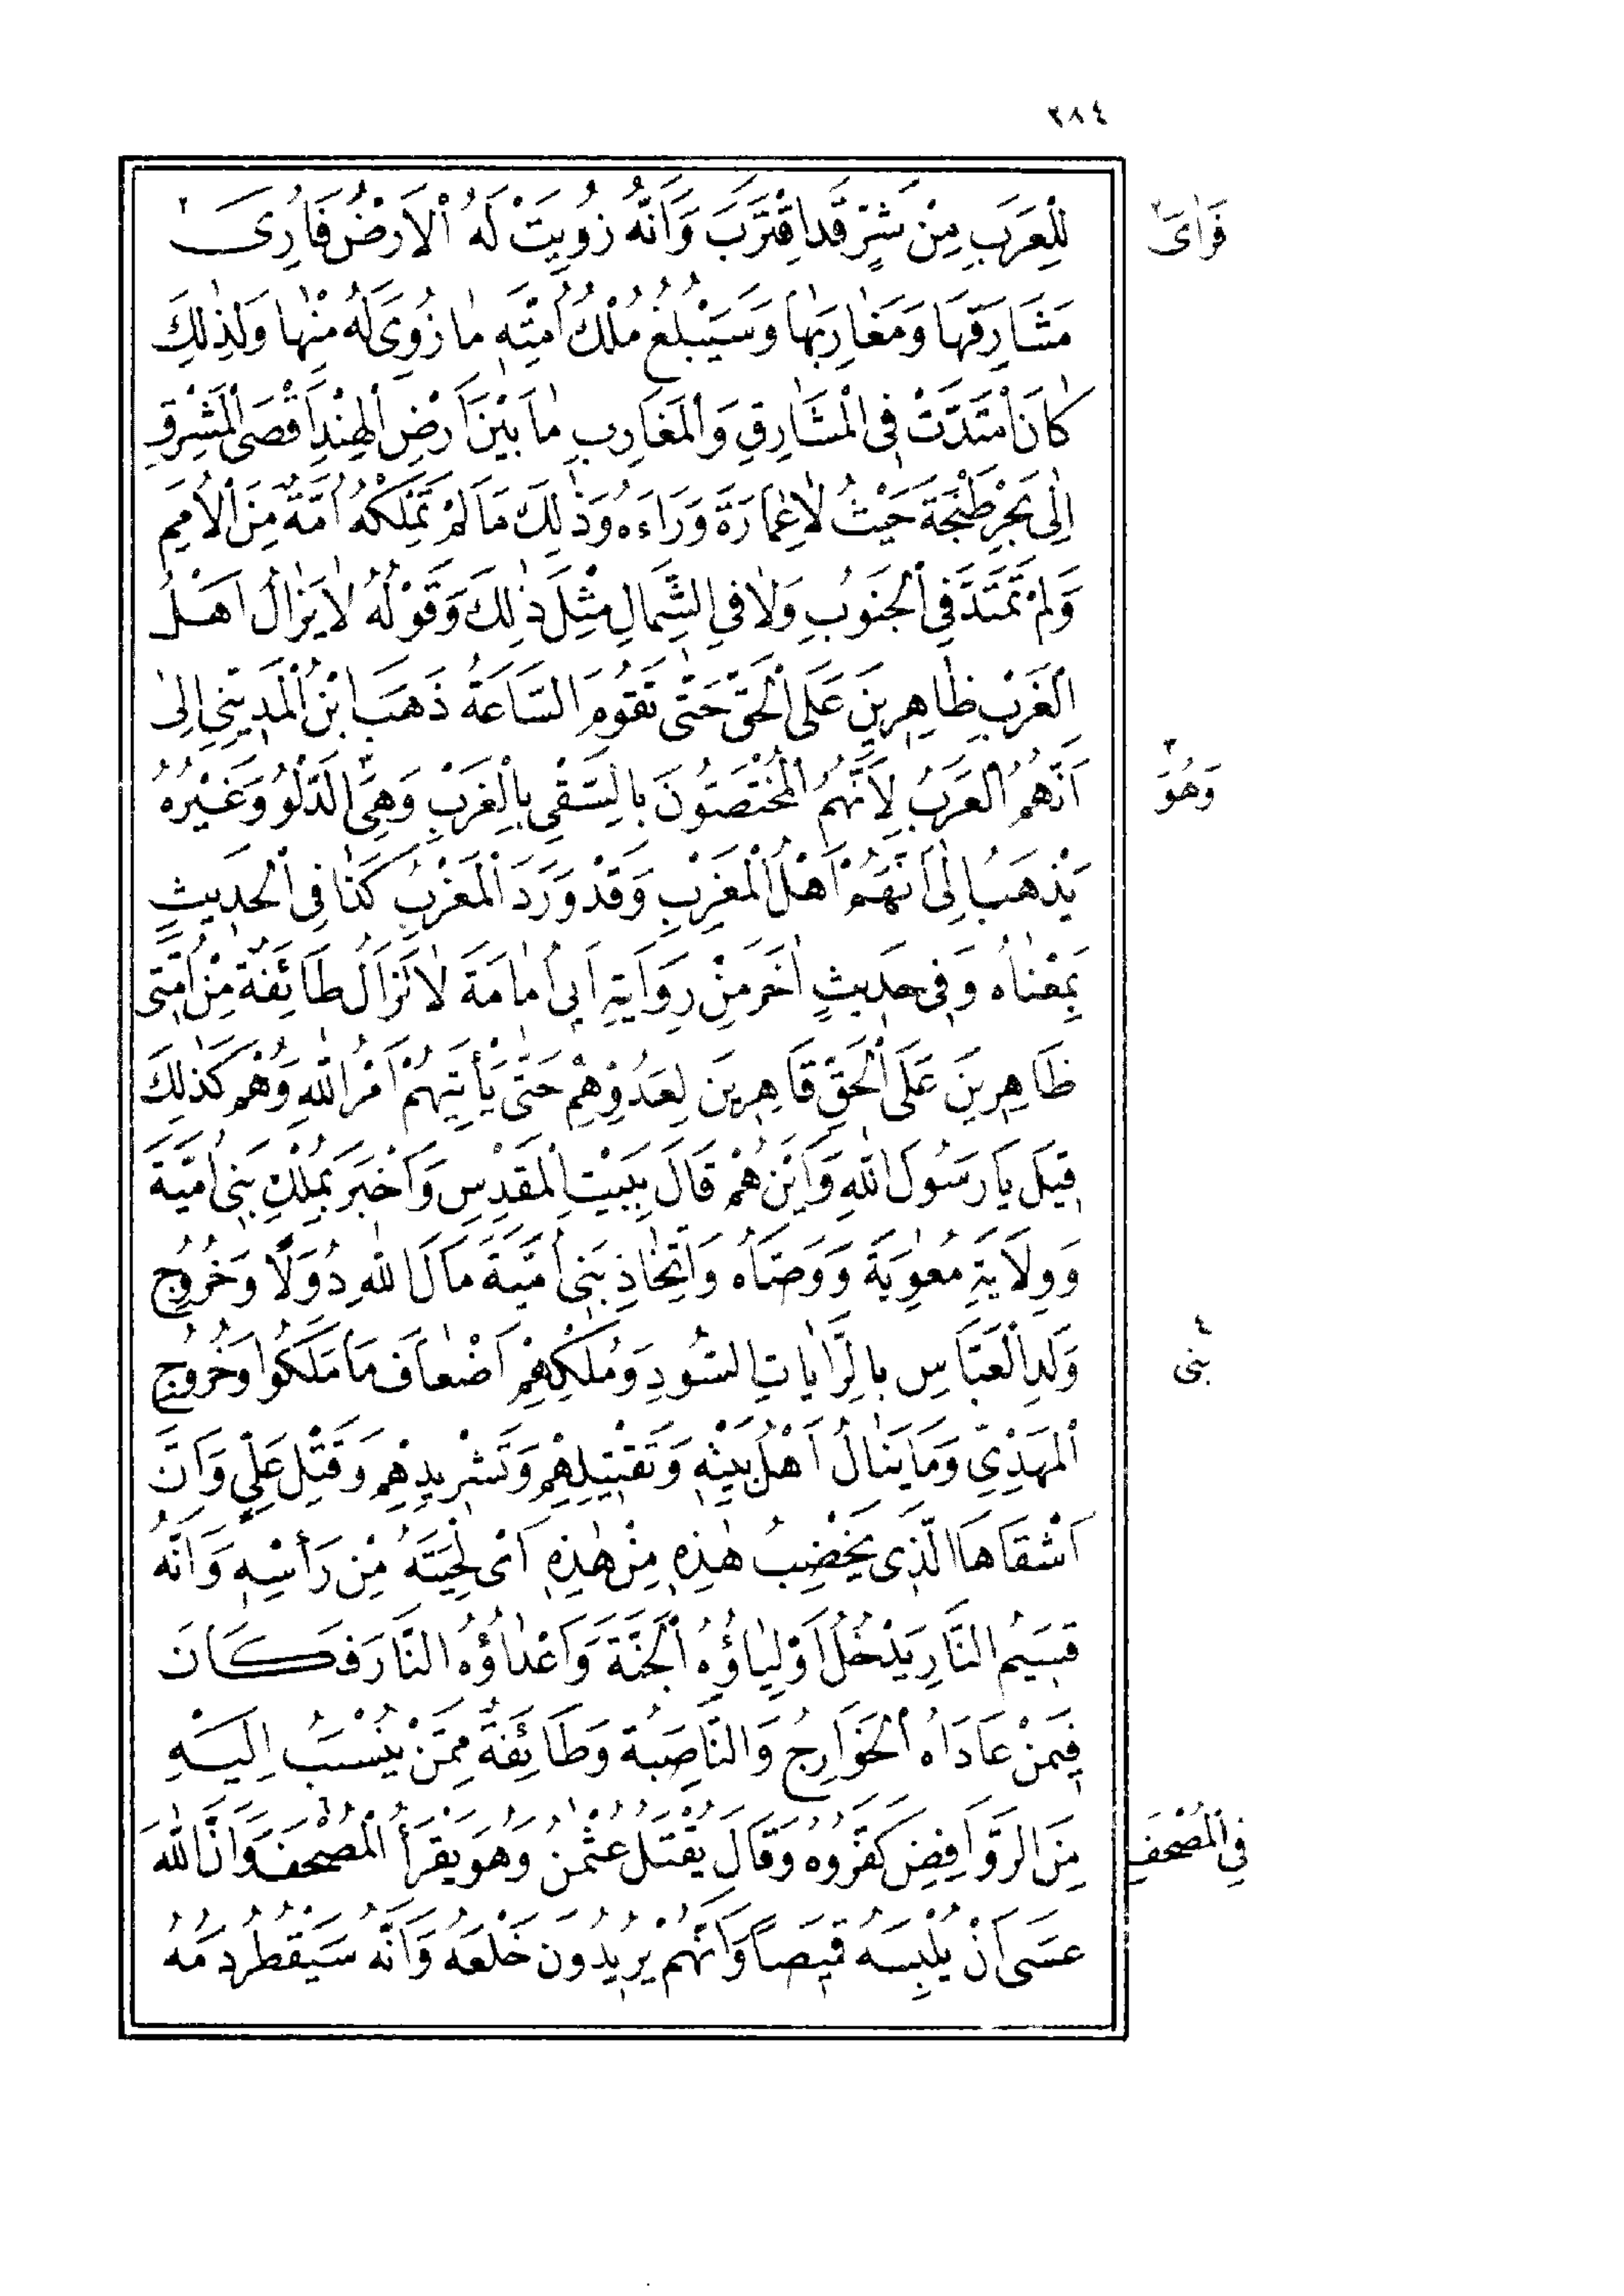 ٢٨٤
لِلْعَرَبِ مِنْ شَرٍّ قَدِ اقْتَرَبَ وَاَنَّهُ زُوِيَتْ لَهُ الْاَرْضُ فَاُرِىَ ٢
فَرَاٰىَ ٢
مَشَارِقَهَا وَمَغَارِبَهَا وَسَيَبْلُغُ مُلْكُ اُمَّتِهِ مَا زُوِىَ لَهُ مِنْهَا وَلِذٰلِكَ
كَانَ امْتَدَّتْ فِى الْمَشَارِقِ وَالْمَغَارِبِ مَا بَيْنَ اَرْضِ الْهِنْدِ اَقْصَى الْمَشْرِقِ
اِلٰى بَحْرِ طَنْجَةَ حَيْثُ لَا عِمَارَةَ وَرَاءَهُ وَذٰلِكَ مَا لَمْ تَمْلِكْهُ اُمَّةٌ مِنَ الْاُمَمِ
وَلَمْ تَمْتَدَّ فِى الْجَنُوبِ وَلَا فِى الشِّمَالِ مِثْلَ ذٰلِكَ وَقَوْلُهُ لَا يَزَالُ اَهْلُ
الْغَرْبِ ظَاهِرِينَ عَلَى الْحَقِّ حَتّٰى تَقُومَ السَّاعَةُ ذَهَبَ ابْنُ الْمَدِينِىِّ اِلٰى
اَنَّهُمُ الْعَرَبُ لِاَنَّهُمُ الْمُخْتَصُّونَ بِالسَّقْىِ بِالْغَرْبِ وَهِىَ ٣ الدَّلْوُ وَغَيْرُهُ
وَهُوَ ٣
يَذْهَبُ اِلٰى اَنَّهُمْ اَهْلُ الْمَغْرِبِ وَقَدْ وَرَدَ الْمَغْرِبُ كَذَا فِى الْحَدِيثِ
بِمَعْنَاهُ وَفِى حَدِيثٍ اٰخَرَ مِنْ رِوَايَةِ اَبِى اُمَامَةَ لَا تَزَالُ طَائِفَةٌ مِنْ اُمَّتِى
ظَاهِرِينَ عَلَى الْحَقِّ قَاهِرِينَ لِعَدُوِّهِمْ حَتّٰى يَأْتِيَهُمْ اَمْرُ اللهِ وَهُمْ كَذٰلِكَ
قِيلَ يَا رَسُولَ اللهِ وَاَيْنَ هُمْ قَالَ بِبَيْتِ الْمَقْدِسِ وَاَخْبَرَ بِمُلْكِ بَنِى اُمَيَّةَ
وَوِلَايَةِ مُعٰوِيَةَ وَوَصَّاهُ وَاتِّخَاذِ بَنِى اُمَيَّةَ مَالَ اللهِ دُوَلًا وَخُرُوجِ
وَلَدِ الْعَبَّاسِ بِالرَّايَاتِ السُّودِ وَمُلْكِهِمْ اَضْعَافَ مَا مَلَكُوا وَخُرُوجِ
بنى ٤
الْمَهْدِىِّ وَمَا يَنَالُ اَهْلُ بَيْتِهِ وَتَقْتِيلِهِمْ وَتَشْرِيدِهِمْ وَقَتْلِ عَلِىٍّ وَاَنَّ
اَشْقَاهَا الَّذِى يَخْضِبُ هٰذِهِ مِنْ هٰذِهِ اَىْ لِحْيَتَهُ مِنْ رَأْسِهِ وَاَنَّهُ
قَسِيمُ النَّارِ يَدْخُلُ اَوْلِيَاؤُهُ الْجَنَّةَ وَاَعْدَاؤُهُ النَّارَ فَكَانَ
فِيمَنْ عَادَاهُ الْخَوَارِجُ وَالنَّاصِبَةُ وَطَائِفَةٌ مِمَّنْ يُنْسَبُ اِلَيْهِ
مِنَ الرَّوَافِضِ كَفَّرُوهُ وَقَالَ يُقْتَلُ عُثْمٰنُ وَهُوَ يَقْرَأُ الْمُصْحَفَ وَاَنَّ اللهَ
فِى الْمُصْحَفِ
عَسَى اَنْ يُلْبِسَهُ قَمِيصًا وَاَنَّهُمْ يُرِيدُونَ خَلْعَهُ وَاَنَّهُ سَيَقْطُرُ دَمُهُ